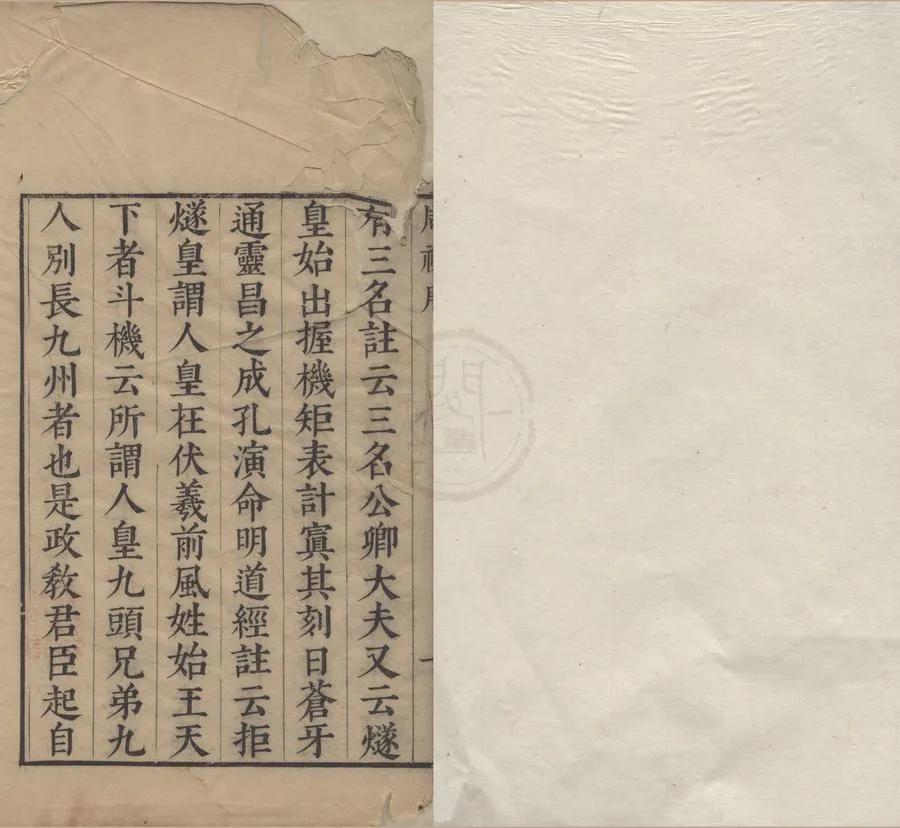 周禮序
一
有三名註云三名公卿大夫又云燧
皇始出握機矩表計寘其刻日蒼牙
通靈昌之成孔演命明道經註云拒
燧皇謂人皇在伏羲前風姓始王天
下者斗機云所謂人皇九頭兄弟九
人別長九州者也是政敎君臣起自